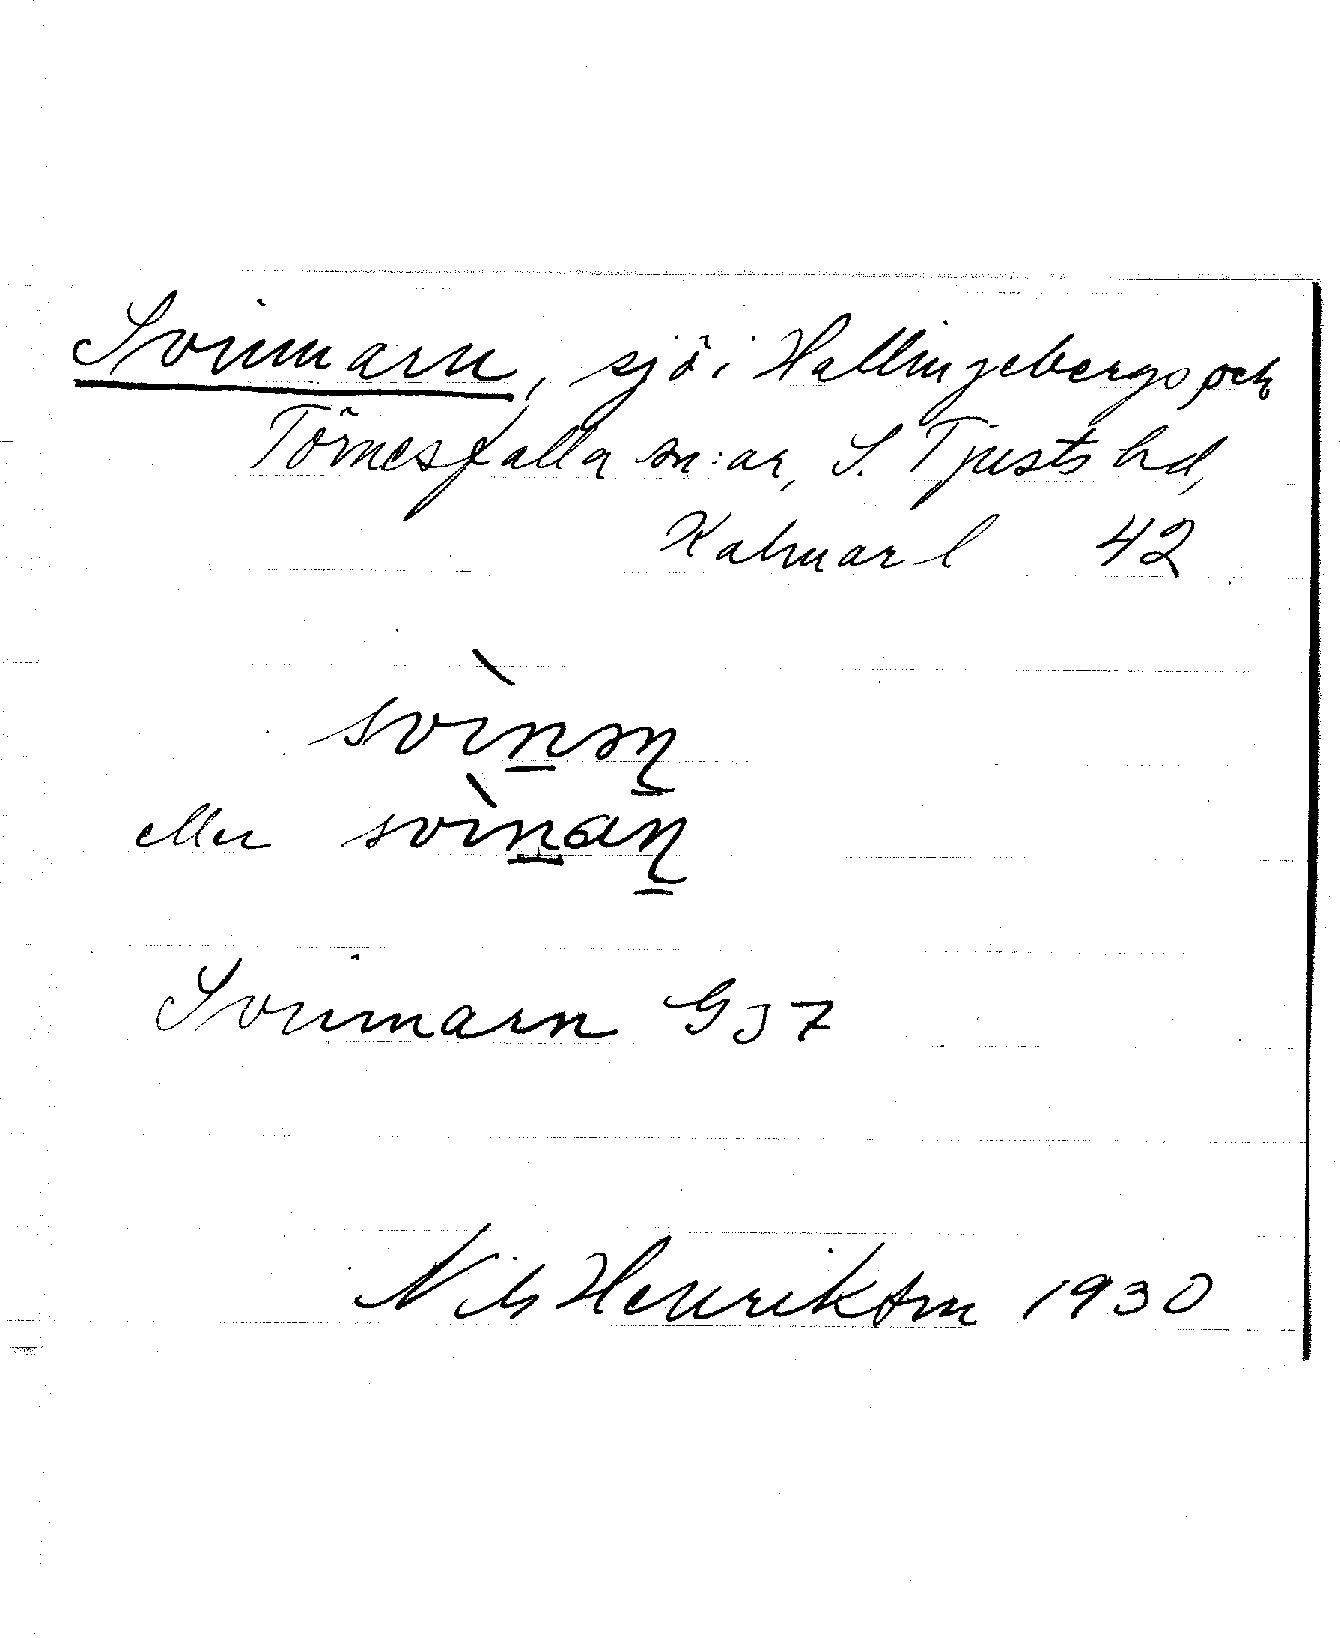 Svinnarn, sjö i Hallingebergs och
Törnesfalla sn:ar, S. Tjusts hd,
Kalmar l 42
eller
Svinnarn GJ7
Nils Henrikson 1930